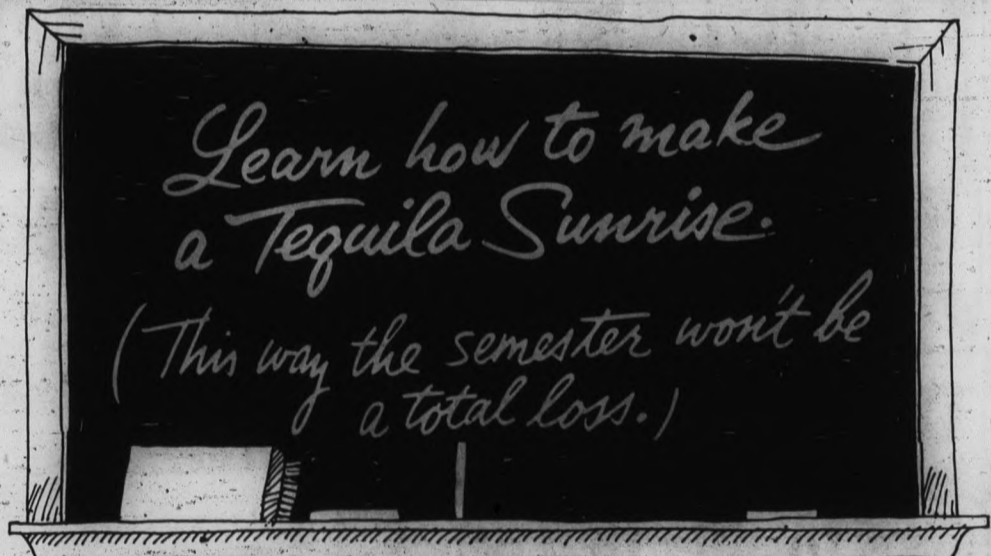 Learn how to make
a Tequila Sunrise.
(This way the semester won't be
a total loss.)